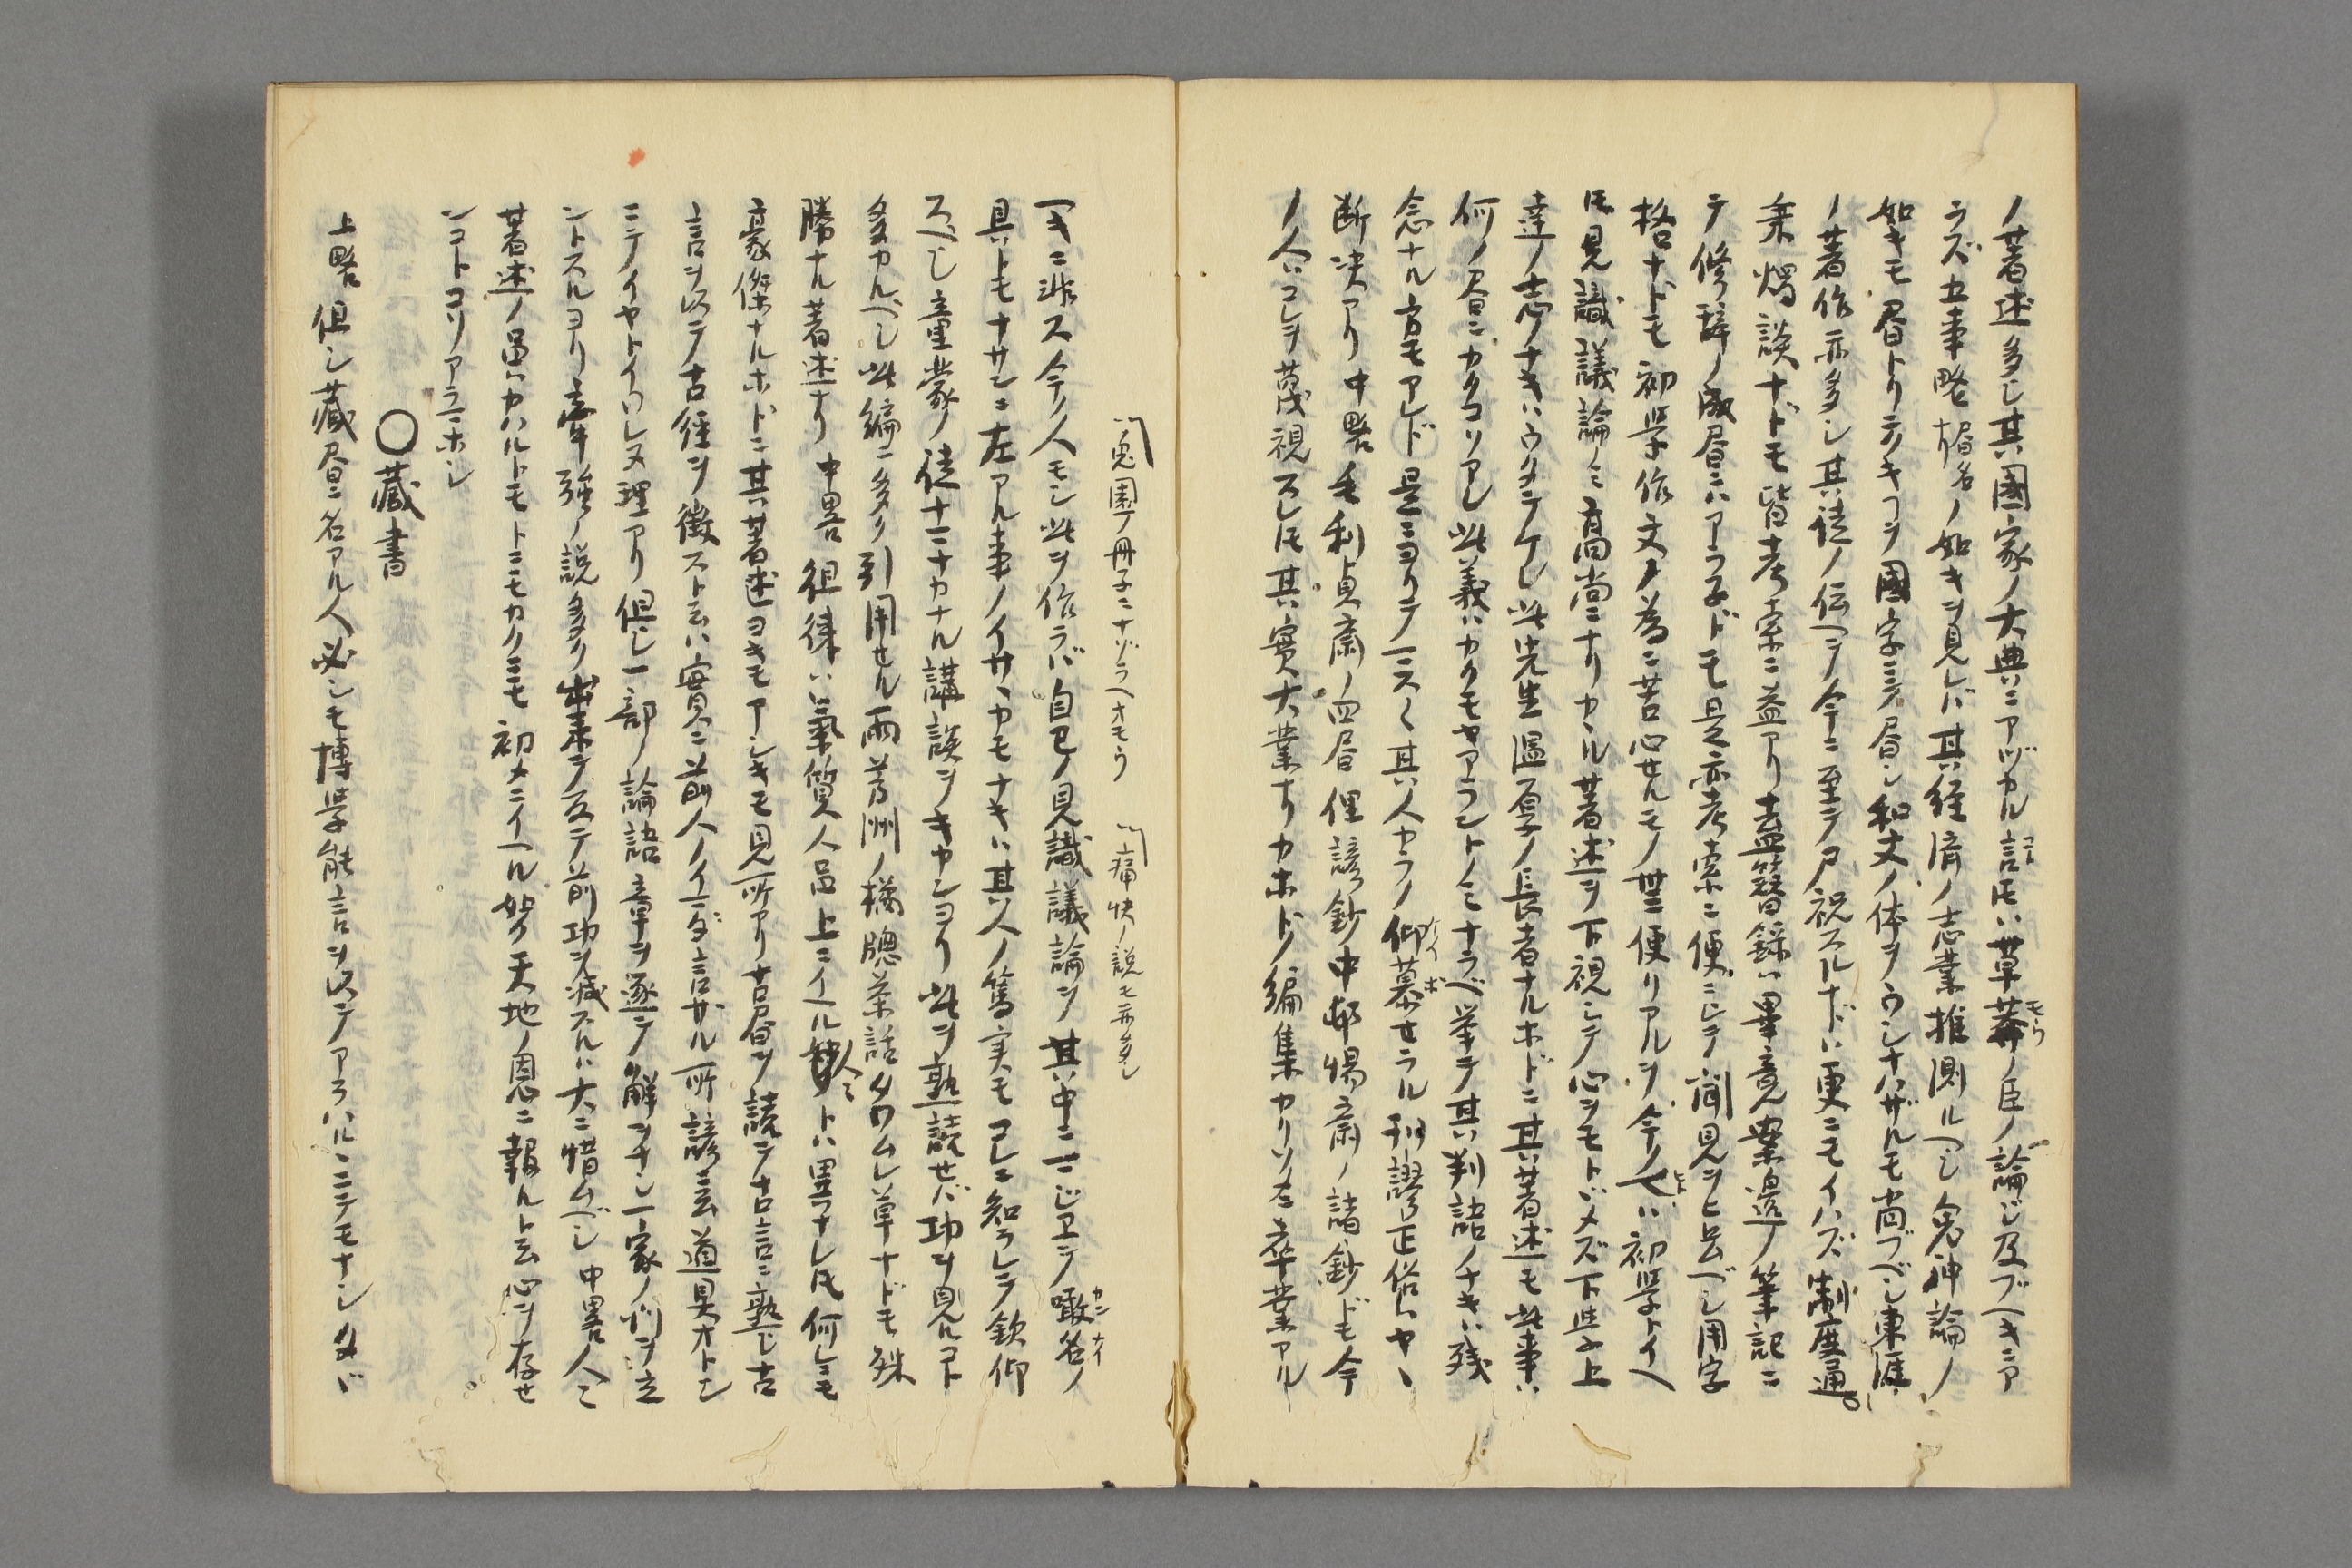 ノ著述多シ其國家ノ大典ニアヅカル言𪜈ハ草莽ノ臣ノ論ジ及ブヘキニア
ラズ五事略ノ如キヲ見レバ其経済ノ志業推測ルヘシ鬼神論ノ
如キモ昼トリテキコヲ國字ニテ書シ和文ノ体ヲウシナハザルモ尚ブベシ東涯
ノ著作亦多シ其徒ノ伝ヘテ今ニ至テ尸祝スルナドハ更ニモイハズ制度通
秉燭談ナドモ皆考索ニ益アリ盍簪録ハ畢竟案邊ノ筆記ニ
テ修辞ノ成書ニハアラ子ドモ是亦考索ニ便ニシテ聞見ヲヒロムベシ用字
格ナドモ初学作文ノ為ニ苦心セルモノ甚便リアルヲ今ノ人ハ初学トイヘ
𪜈見識議論ノミ高尚ニナリカヽル著述ヲ下視シテ心ヲモトドメズ下学上
達ノ志ノナキハウタテケレ此先生温厚ノ長者ナルホドニ其著述モ此事ハ
何ノ書ニカクコソアレ此義ハカクモヤアラントノミナラベ挙テ其判語ノナキハ残
念ナル方モアレド是ニヨリテ一ニスヽ其人カラノ仰慕セラル刊謬正俗ハヤヽ
断決アリ中畧毛利貞斎ノ四書俚諺鈔中邨惕斎ノ諸鈔ドモ今
ノ人ハコレヲ蔑視スレ𪜈其實大業ナリカホドノ編集カリソメ卒業アル
兎園ノ冊子ニナゾラヘオモウ 痛快ノ説モ亦多シ
ヘキニ非ス今ノ人モシ此ヲ作ラバ自己ノ見識議論ヲ其中ニマジヱテ噉名ノ
具トモナサンニ左アル事ノイサヽカモナキハ其人ノ篤実モコレニ知ラレテ欽仰
スベシ童蒙ノ徒ナマナカナル講談ヲキカンヨリ此ヲ熟読セバ功ヲ見ルコト
多カルベシ此編ニ多ク引用セル雨芳洲ノ橘牕茶話タワムレ草ナドモ殊
勝ナル著述ナリ中畧徂徠ハ氣質人品上ニイヘル人々トハ異ナレ𪜈何レモ
豪傑ナルホドニ其著述ヨキモアシキモ見所アリ古書ヲ読テ古言ニ熟シ古
言ヲ以テ古経ヲ徴スト云ハ實ニ前人ノイマダ言ザル所諺云道具オトシ
ニテイヤトイワレヌ理アリ但シ一部ノ論語章ヲ逐テ解ヲナシ一家ノ例ヲ立
ントスルヨリ牽強ノ説多ク出来テ反テ前功ヲ減スルハ大ニ惜ムベシ中畧人ニ
著述ノ品ハカハルトモトニモカクニモ初メニイヘル如ク天地ノ恩ニ報ルト云心ヲ存セ
ンコトコソアラマホシ
○藏書
上畧但シ藏書ニ名アル人必シモ博学能言ヲ以テアラハルヽニテモナシタトバ